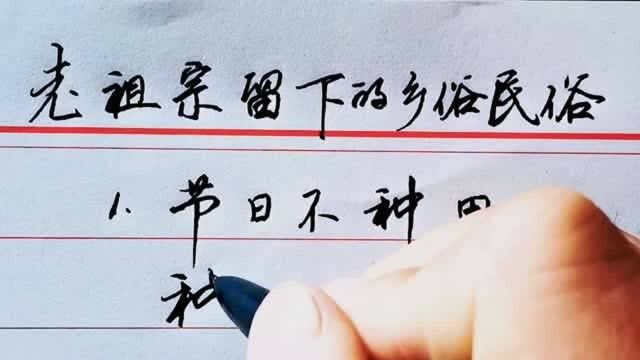 老祖宗留下的乡俗民俗
1. 节日不种田